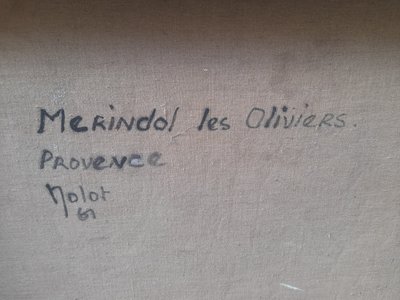 MERINDOL les OliviERS.
PROVENCE
Nolot
61